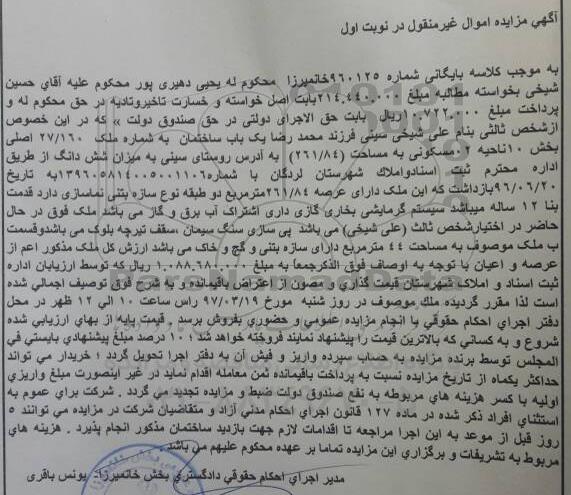 آگهي مزايده اموال غيرمنقول در نوبت اول
به موجب کلاسه بایگانی شماره ۹۶۰۱۲۵خانمیرزا محکوم له یحیی دهیری پور محکوم علیه آقای حسین
شیخی بخواسته مطالبه مبلغ ۲۱۴.۴۴۰.۰۰۰بابت اصل خواسته و خسارت تاخیروتادیه در حق محکوم له و
پرداخت مبلغ ۱۰.۷۲۲.۰۰۰ریال بابت حق الاجرای دولتی در حق صندوق دولت » که در این خصوص
ازشخص ثالثی بنام علی شیخی سینی فرزند محمد رضا یک باب ساختمان به شماره ملک ۲۷/۱۶۰ اصلی
بخش ۱۰ناحیه ۰۲مسکونی به مساحت (۲۶۱/۸۴) به آدرس روستای سینی به میزان شش دانگ از طریق
اداره محترم ثبت اسنادواملاک شهرستان لردگان با شماره۱۳۹۶۰۵۸۱۴۰۰۵۰۰۱۱۰۶به تاریخ
۹۶/۰۶/۲۰بازداشت که این ملک دارای عرصه ۲۶۱/۸۴مترمربع دو طبقه نوع سازه بتنی نماسازی دارد قدمت
بنا ۱۲ ساله میباشد سیستم گرمایشی بخاری گازی داری اشتراک آب برق و گاز می باشد ملک فوق در حال
حاضر در اختیارشخص ثالث (علی شیخی) می باشد پی سازی سنگ سیمان ،سقف تیرچه بلوک می باشدوقسمت
ب ملک موصوف به مساحت ۴۴ مترمربع دارای سازه بتنی و گچ و خاک می باشد ارزش کل ملک مذکور اعم از
عرصه و اعیان با توجه به اوصاف فوق الذکرجمعاً به مبلغ ۱.۰۸۸.۶۸۰.۰۰۰ ریال که توسط ارزیابان اداره
ثبت اسناد و املاک شهرستان قیمت گذاری و مصون از اعتراض باقیمانده و به شرح فوق توصیف اجمالی شده
است لذا مقرر گردیده ملک موصوف در روز شنبه مورخ ۹۷/۰۳/۱۹ راس ساعت ۱۰ الی ۱۲ ظهر در محل
دفتر اجرای احکام حقوقی با انجام مزایده عمومی و حضوری بفروش برسد . قیمت پایه از بهای ارزیابی شده
شروع و به کسانی که بالاترین قیمت را پیشنهاد نمایند فروخته خواهد شد؛ ۱۰ درصد مبلغ پیشنهادی بایستی فی
المجلس توسط برنده مزایده به حساب سپرده واریز و فیش آن به دفتر اجرا تحویل گردد ؛ خریدار می تواند
حداکثر یکماه از تاریخ مزایده نسبت به پرداخت باقیمانده ثمن معامله اقدام نماید در غیر اینصورت مبلغ واریزی
اولیه با کسر هزینه های مربوطه به نفع صندوق دولت ضبط و مزایده تجدید می گردد . شرکت برای عموم به
استثنای افراد ذکر شده در ماده ۱۲۷ قانون اجرای احکام مدنی آزاد و متقاضیان شرکت در مزایده می توانند ۵
روز قبل از موعد به این اجرا مراجعه تا اقدامات لازم جهت بازدید ساختمان مذکور انجام پذیرد . هزینه های
مربوط به تشریفات و برگزاری این مزایده تماما بر عهده محکوم علیهم می باشد
مدیر اجرای احکام حقوقی دادگستری بخش خانمیرزا- یونس باقری